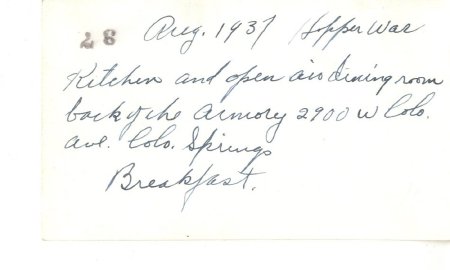 28 Aug. 1937 Hopper War
Kitchen and open air dining room
back of the Armory 2900 W Colo.
ave. Colo. Springs
Breakfast.